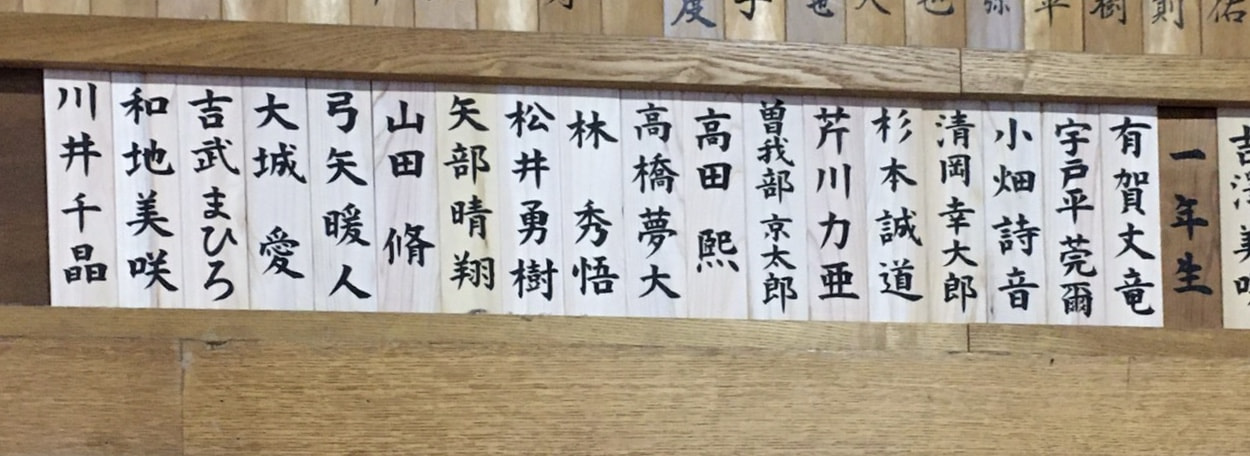 一年生
有賀丈竜
宇戸平莞爾
小畑詩音
清岡幸大郎
杉本誠道
芹川力亜
曽我部京太郎
高田熙
高橋夢大
林秀悟
松井勇樹
矢部晴翔
山田脩
弓矢暖人
大城愛
吉武まひろ
和地美咲
川井千晶